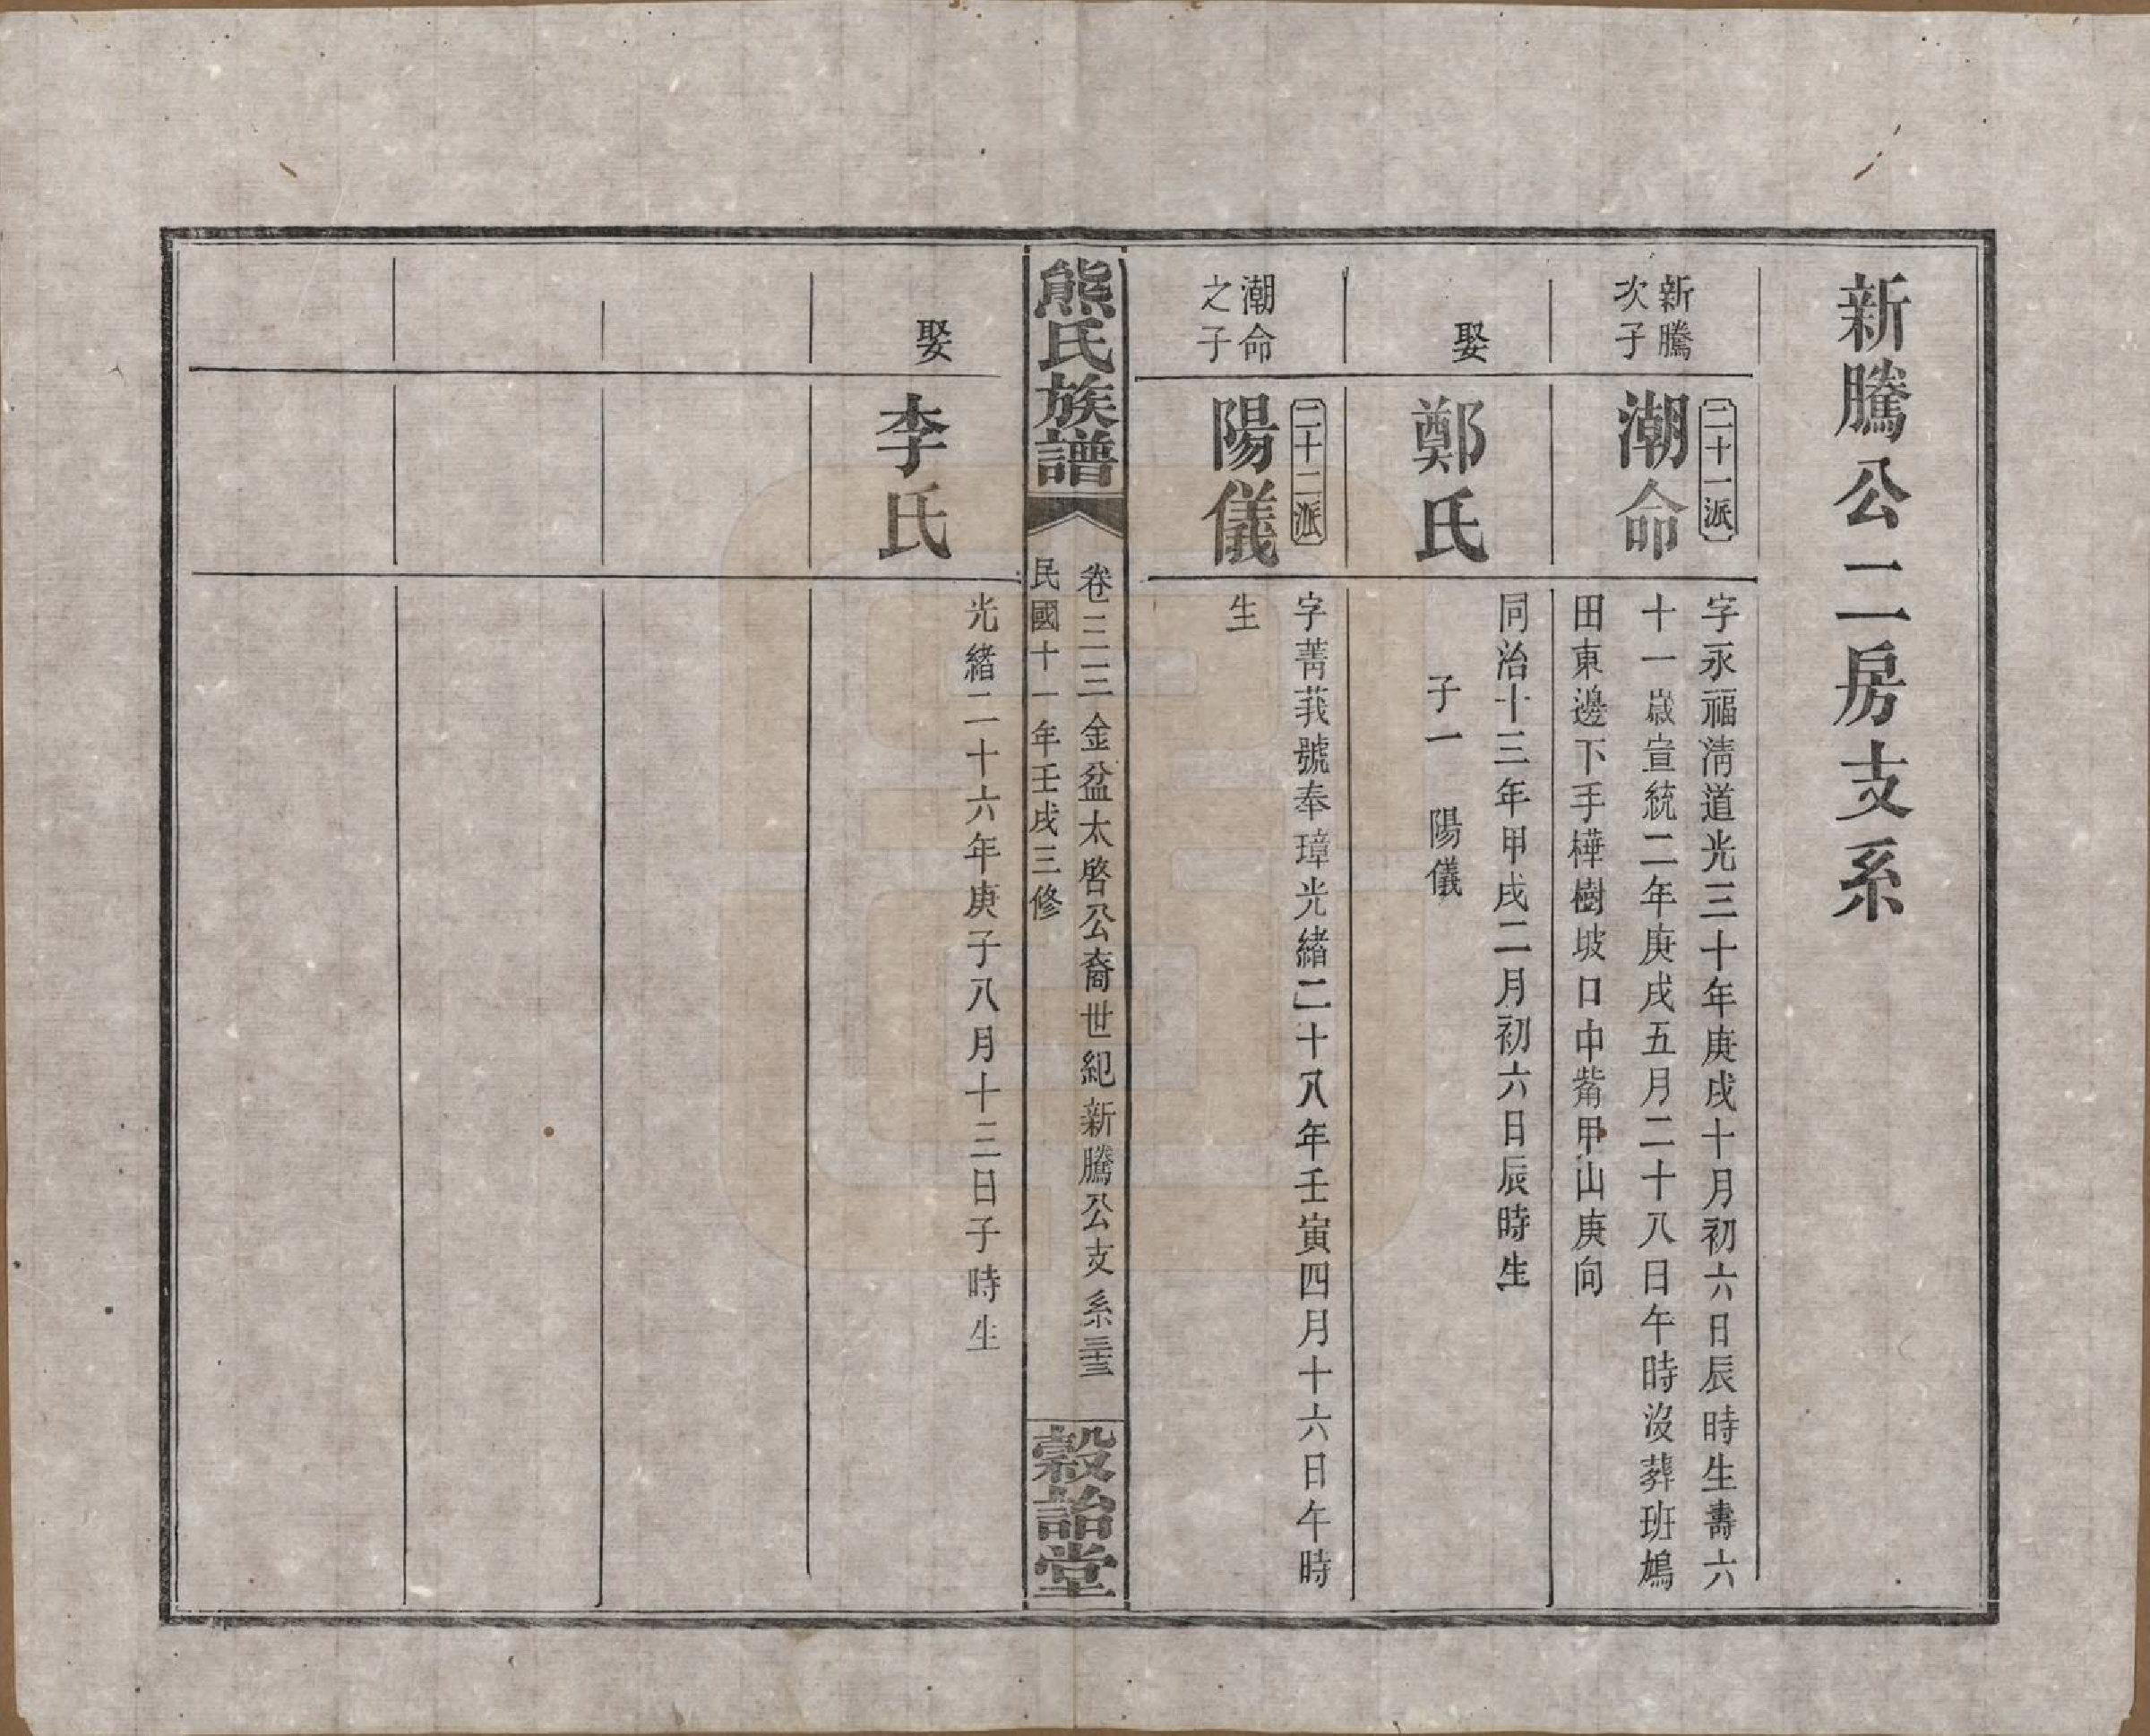 新騰公二房支系
新騰
次子
二十一派
潮命
字永福淸道光三十年庚戌十月初六日辰時生壽六
十一歲宣統二年庚戌五月二十八日午時沒葬班鳩
田東邊下手樺樹坡口中嘴甲山庚向
娶
鄭氏
同治十三年甲戌二月初六日辰時生
子一 陽儀
潮命
之子
二十二派
陽儀
字菁莪號奉璋光緒二十八年壬寅四月十六日午時
生
熊氏族譜
卷三三 金盆太啓公裔世紀新騰公支系
民國十一年壬戌三修
穀詒堂
娶
李氏
光緒二十六年庚子八月十三日子時生